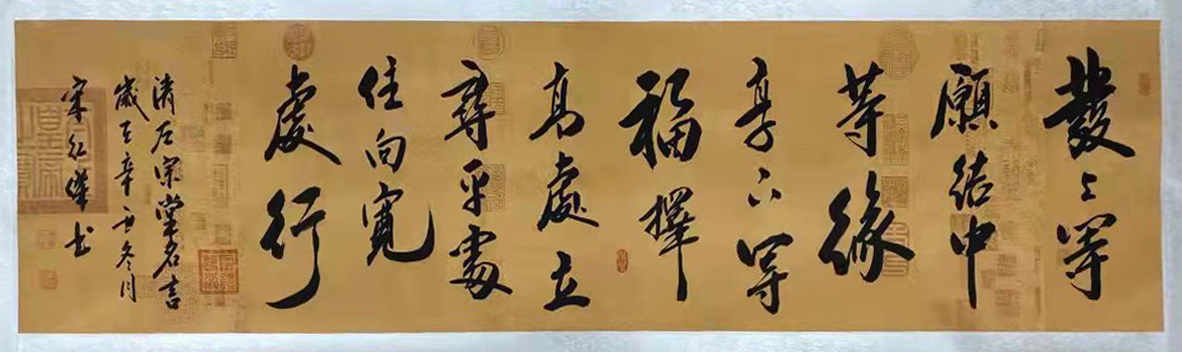 發上等
願結中
等緣
享下等
福擇
高處立
尋平處
住向寬
處行
清左宗棠名言
歲在辛丑冬月
宋紅書